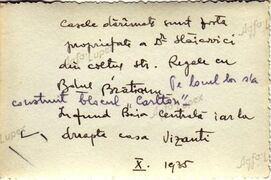 Casele dărâmate sunt fosta
proprietate a Dr
din colțul str. Regale cu
Bdul Brătianu. Pe locul lor s'a
construit blocul „Carlton"
În fund Baia Centrală iar la
dreapta casa Vizanti
X. 1935